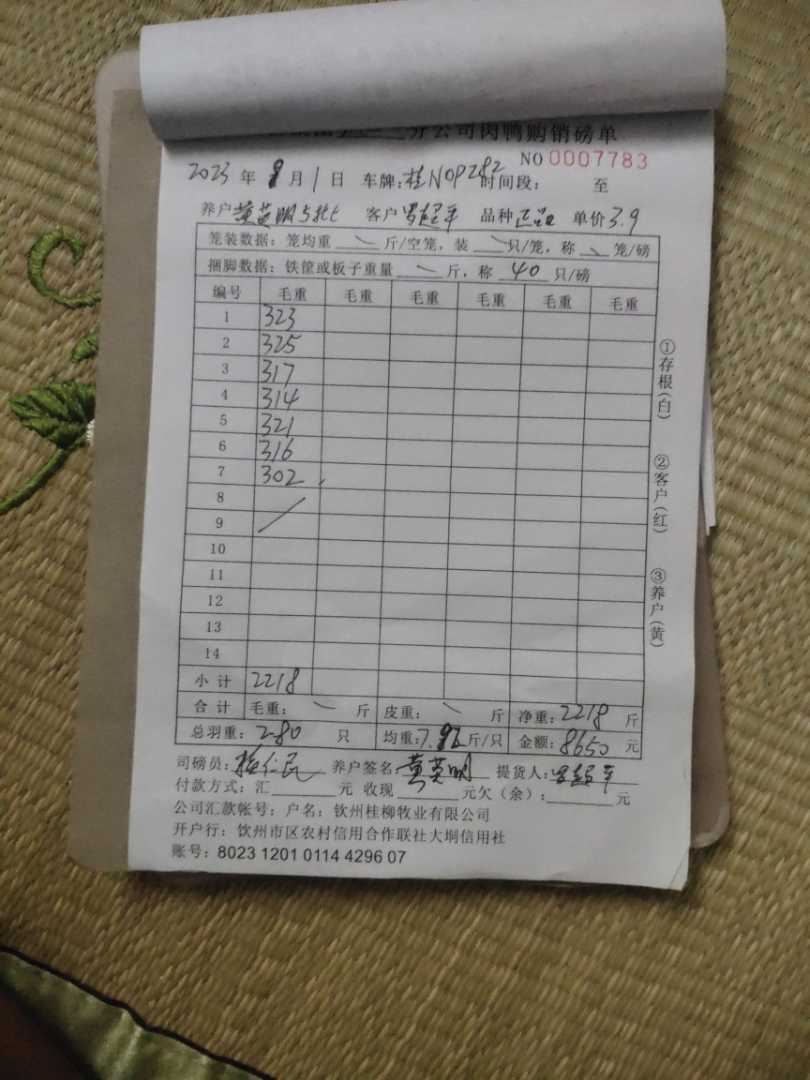 分公司肉鸭购销磅单
NO 0007783
2023 年 8 月 1 日 车牌:桂N0P282 时间段: 至
养户 黄英明5批 客户 罗超平 品种 正品 单价 3.9
笼装数据: 笼均重 斤/空笼, 装 只/笼, 称 笼/磅
捆脚数据: 铁筐或板子重量 斤, 称 40 只/磅
编号 毛重 毛重 毛重 毛重 毛重 毛重
1 323
2 325
3 317
4 314
5 321
6 316
7 302
8
9
10
11
12
13
14
小计 2218
合计 毛重: 斤 皮重: 斤 净重: 2218 斤
总羽重: 280 只 均重: 7.92 斤/只 金额: 8650 元
司磅员: 养户签名: 黄英明 提货人: 罗超平
付款方式: 汇 元 收现 元欠(余): 元
公司汇款帐号: 户名: 钦州桂柳牧业有限公司
开户行: 钦州市区农村信用合作联社大垌信用社
账号: 8023 1201 0114 4296 07
①存根(白)
②客户(红)
③养户(黄)